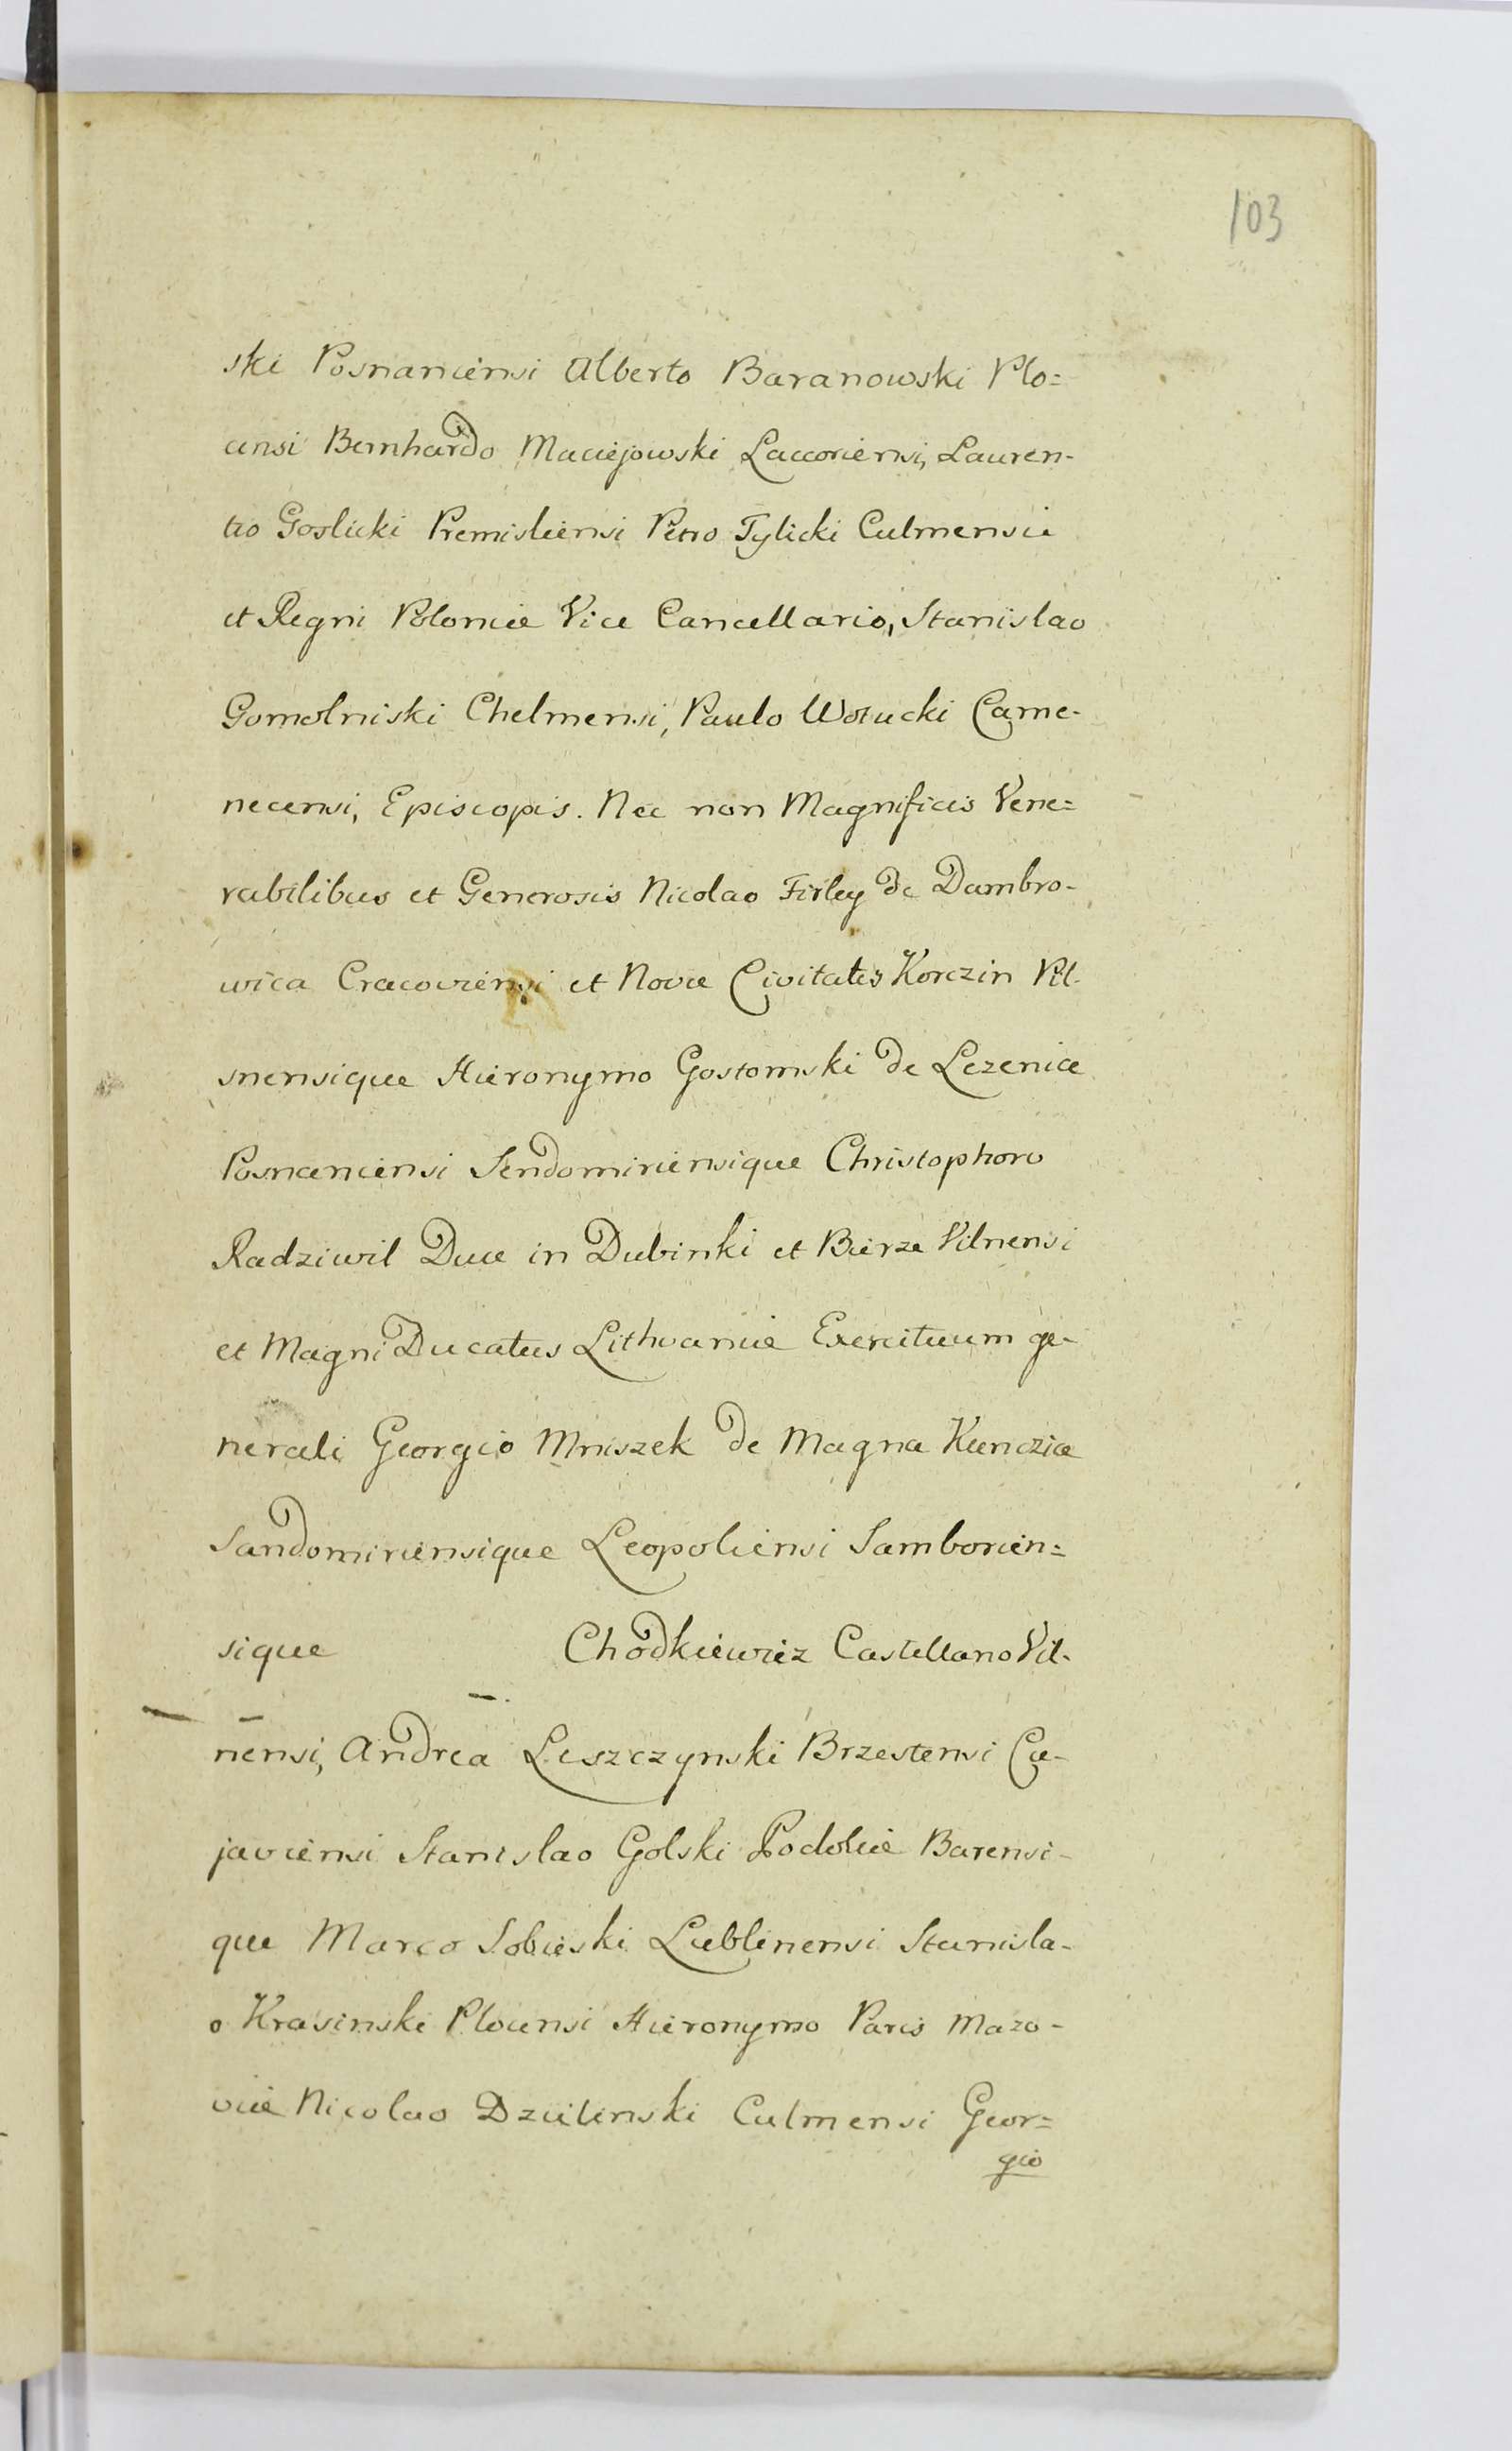 103
ski Posnaniensi Alberto Baranowski Plo=
censi Bernhardo Maciejowski Luccoriensi, Lauren-
tio Goslicki Premisliensi Petro Tylicki Culmensi
et Regni Poloniæ Vice Cancellario, Stanislao
Gomolniski Chelmensi, Paulo Wołucki Came-
necensi, Episcopis. Nec non Magnificis Vene=
rabilibus et Generosis Nicolao Firley de Dambro-
wica Cracoviensi et Novæ Civitatis Korczin Pil-
snensique Hieronymo Gostomski de Lezenice
Posnaniensi Sendomiriensique Christophoro
Radziwil Duce in Dubinki et Bierze Vilnensi
et Magni Ducatus Lithvaniæ Exercituum ge-
nerali Georgio Mniszek de Magna Kunczice
Sandomiriensique Leopoliensi Samborien=
sique Chodkiewicz Castellano Vil-
nensi, Andrea Leszczynski Brzestensi Cu-
javiensi Stanislao Golski Podoliæ Barensi-
que Marco Sobieski Lublinensi Stanisla-
o Krasinski Plocensi Hieronymo Paris Mazo-
viæ Nicolao Dzialinski Culmensi Geor=
gio